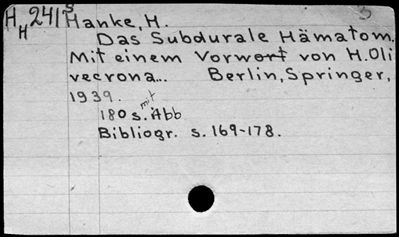 H H 241 S Hanke, H. 3
Das Subdurale Hämatom.
Mit einem Vorwort von H. Oli
vecrona... Berlin, Springer,
1939.
180 s. mit Abb
Bibliogr. s. 169-178.